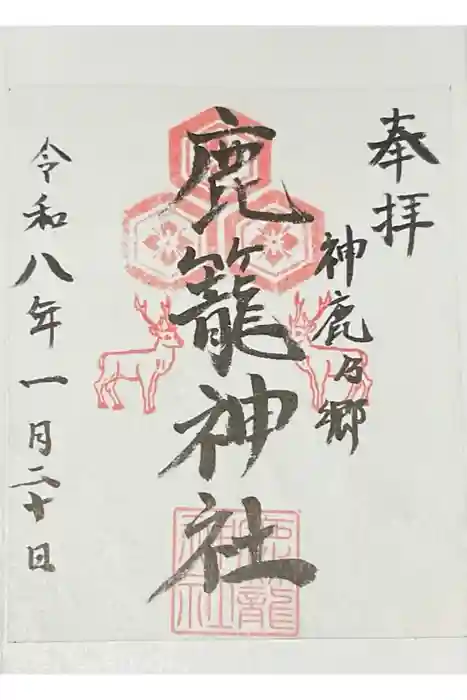 奉拝
神鹿乃郷
鹿籠神社
令和八年一月二十日